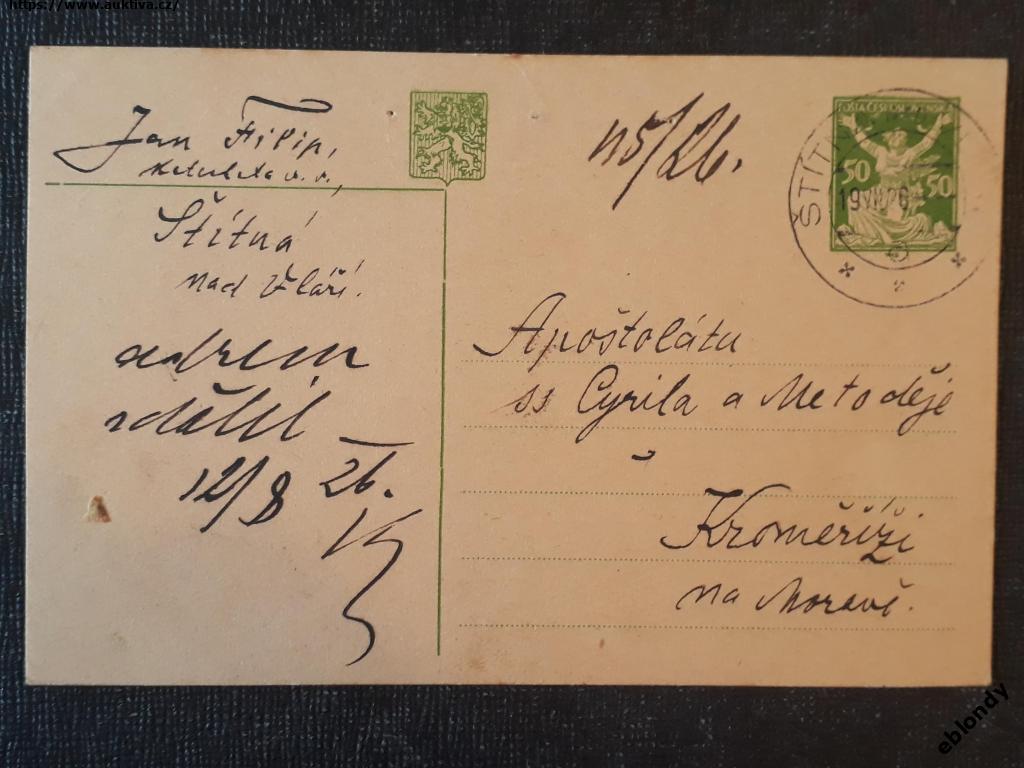 https://www.auktiva.cz/
Jan Filip,
Štítná
nad Vláří.
adresu
sdělil
12/8 26.
115/26.
POŠTA ČESKOSLOVENSKÁ
50 50
ŠTÍT
19 VII 26
Apoštolátu
ss Cyrila a Metoděje
v
Kroměříži
na Moravě.
eblondy